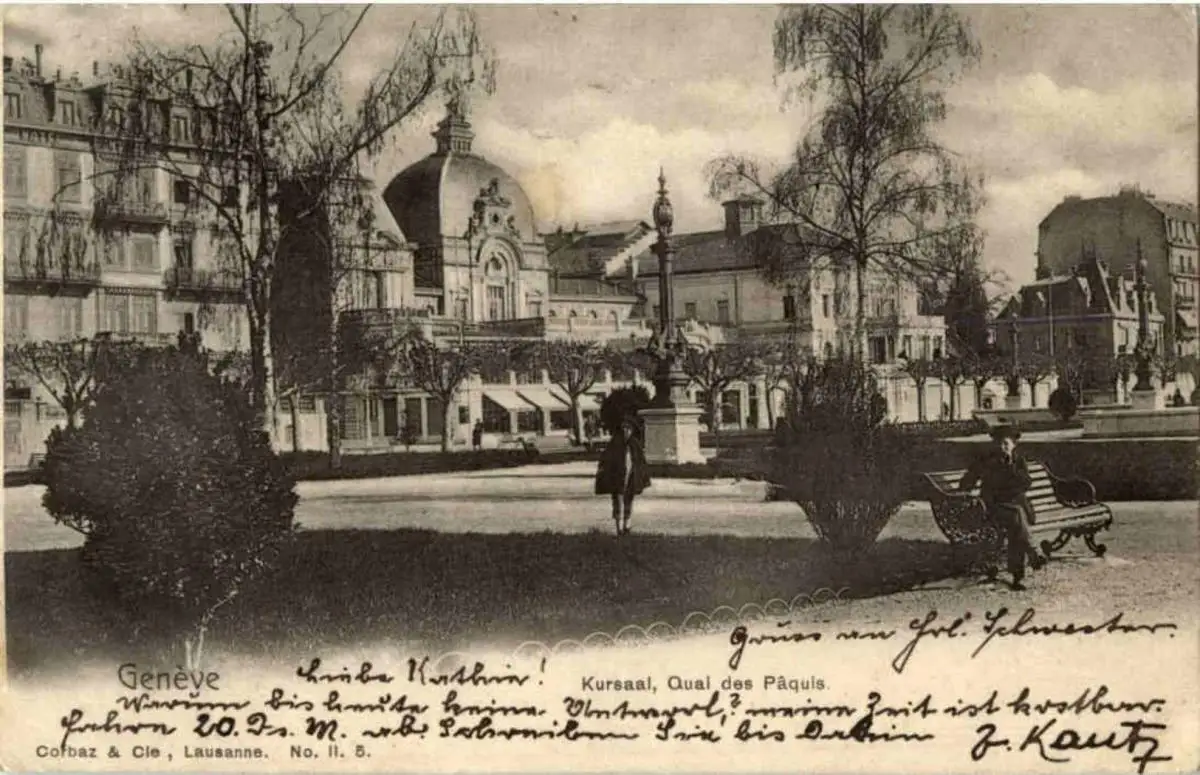 HOTEL
Gruss an Frl. Schwester.
Genève
Liebe Kathrin!
Kursaal, Quai des Pâquis.
Warum bis heute keine Antwort? meine Zeit ist kostbar.
fahre 20. Ds. M. ab. Schreiben Sie bis dahin
Z. Kautz
Corbaz & Cie, Lausanne. No. II. 5.